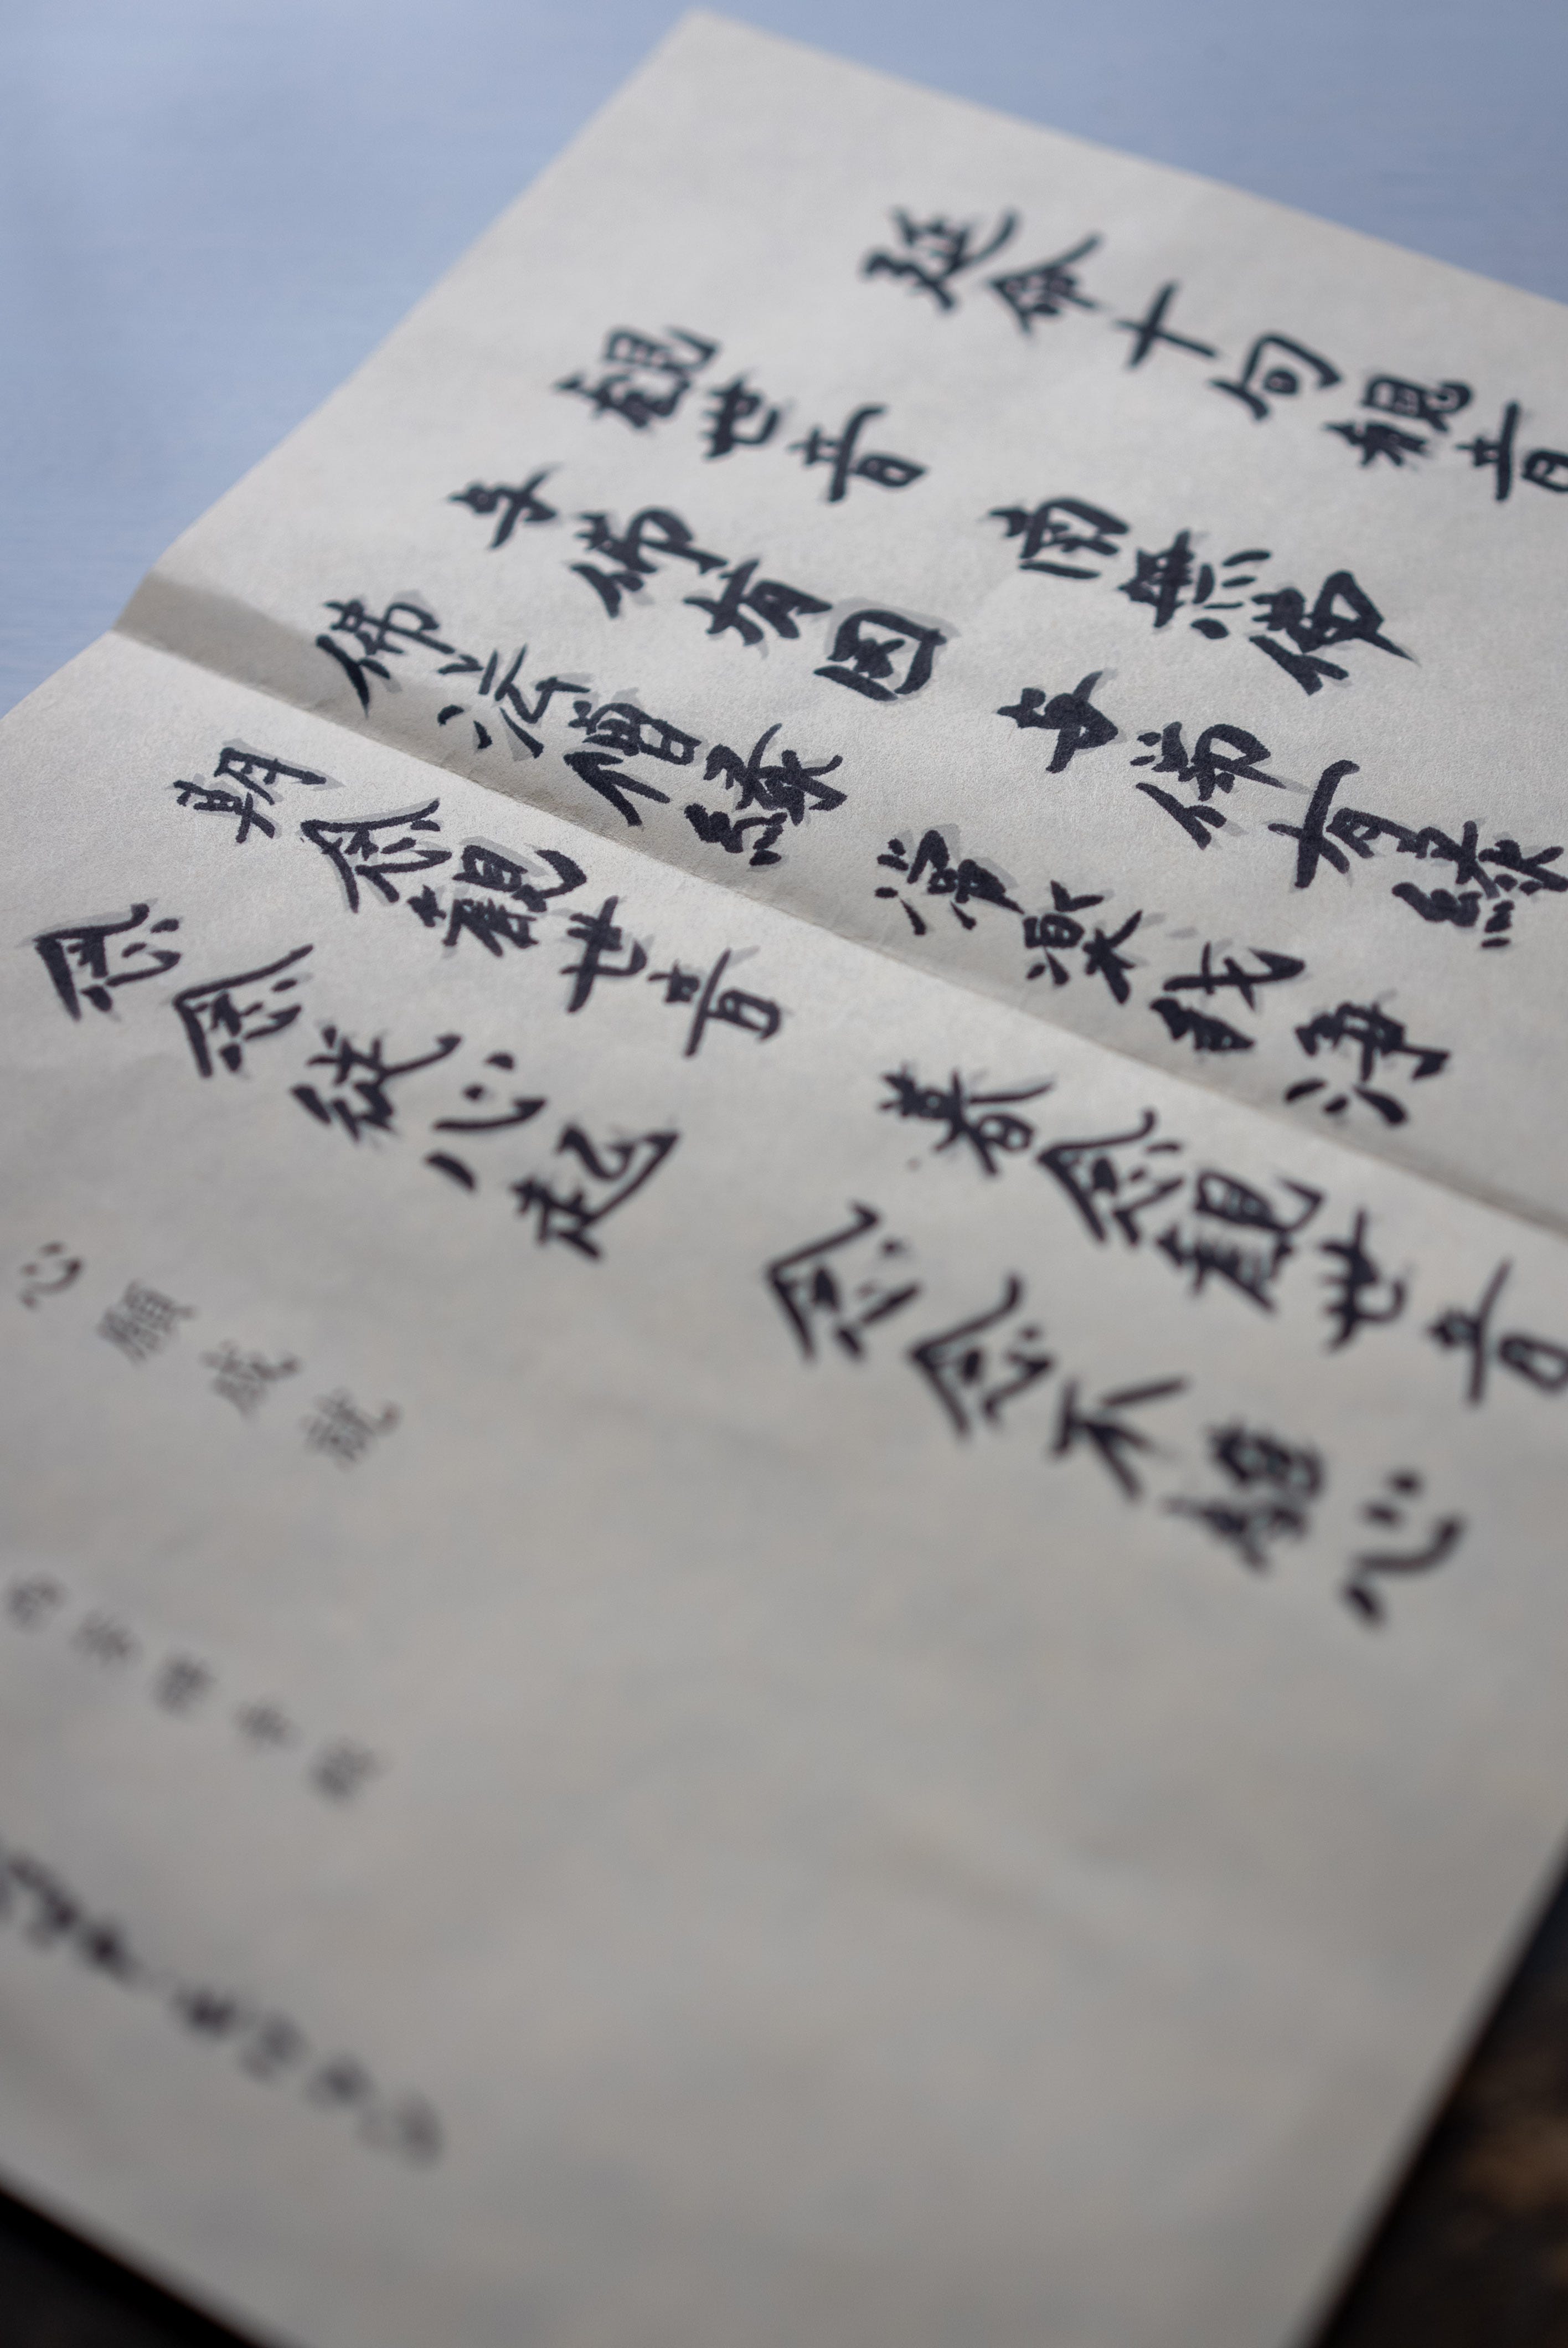 延命十句観音
観世音 南無佛
与佛有因 与佛有縁
佛法僧縁 常楽我浄
朝念観世音 暮念観世音
念念従心起 念念不離心
心願成就